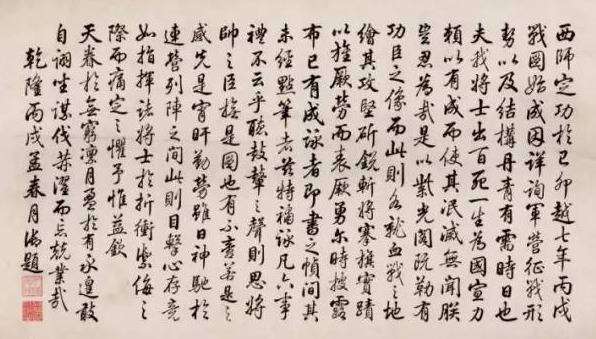 西師定功於己卯越七年丙戌
戰圖始成因詳詢軍營征戰形
勢以及結構丹青有需時日也
夫我將士出百死一生為國宣力
賴以有成而使其泯滅無聞朕
豈忍為哉是以紫光閣既勒有
功臣之像而此則各就血戰之地
繪其攻堅斫銳斬將搴旗實蹟
以旌厥勞而表厥勇爾時披露
布已有成詠者即書之幀間其
未經點筆者茲特補詠凡六事
禮不云乎聽鼓鼙之聲則思將
帥之臣於是圖也有不啻若是之
感先是宵旰勤勞雖日神馳於
連營列陣之間此則目擊心存竟
如指揮諸將士於折衝禦侮之
際而痛定之懼予惟益欽
天眷於無窮凜月盈於有永遑敢
自詡生謀伐莽濯而忘兢業哉
乾隆丙戌孟春月御題